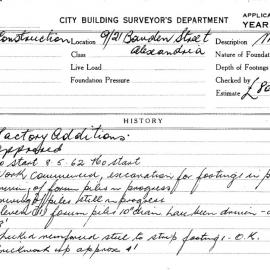 CITY BUILDING SURVEYOR'S DEPARTMENT
APPLICA
YEAR
Construction Location 9/21 Bowden Street Description
Alexandria Nature of Foundat
Live Load Depth of Footings
Foundation Pressure Checked by
Estimate £80
HISTORY
Factory Additions.
Approved
to Start 8.5.62 No start
Work commenced, excavation for footings in p
of forum piles in progress
piles still in progress
forum piles 10" diam have been driven
Checked reinforced steel to strip footings. O.K.
Brickwork up approx 4'